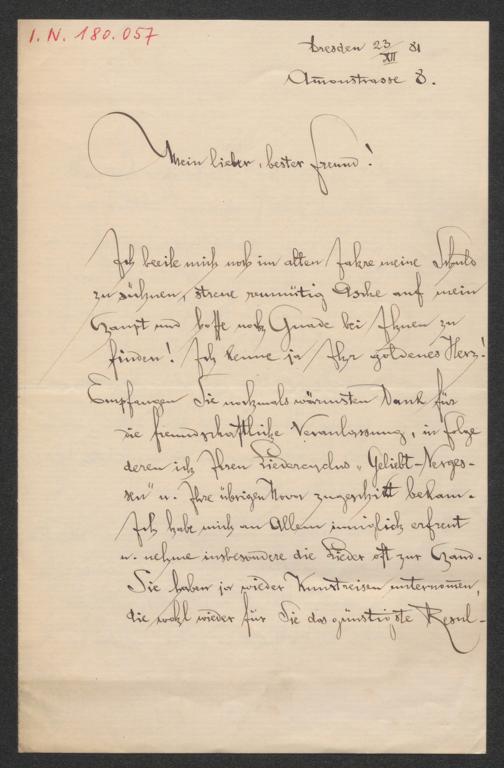 I. N. 180.057
Dresden 23/XII 81
Amonstrasse 8.
Mein lieber, bester Freund!
Ich beeile mich noch im alten Jahre meine Schuld
zu sühnen, streue reumütig Asche auf mein
Haupt und hoffe noch Gnade bei Ihnen zu
finden! Ich kenne ja Ihr goldenes Herz!
Empfangen Sie nochmals wärmsten Dank für
die freundschaftliche Veranlassung, in Folge
deren ich Ihren Liedercyclus „Geliebt-Verges-
sen" u. Ihre übrigen Novn zugeschickt bekam.
Ich habe mich an Allem inniglich erfreut
u. nehme insbesondere die Lieder oft zur Hand.
Sie haben ja wieder Kunstreisen unternomen,
die wohl wieder für Sie das günstigste Resul-